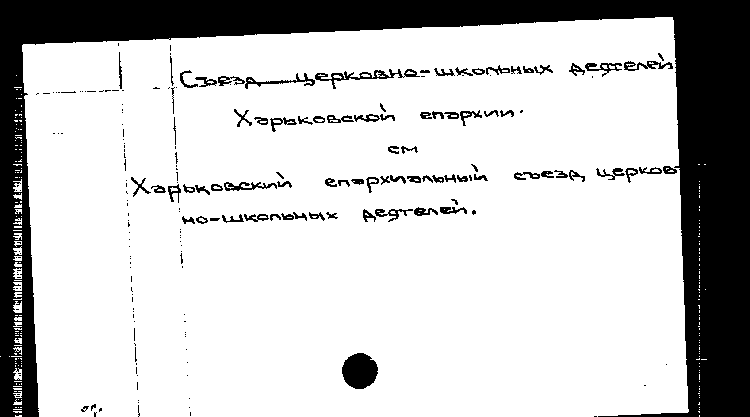 Съезд церковно-школьных деятелей
Харьковской епархии.
см
Харьковский епархиальный съезд, церков-
но-школьных деятелей.